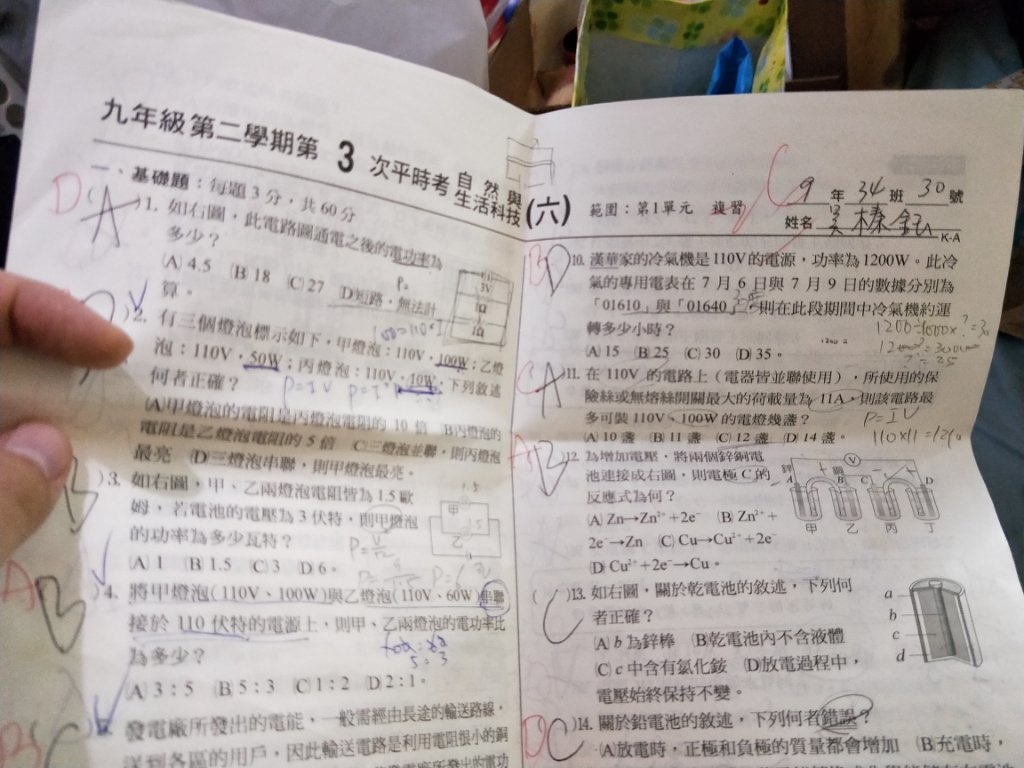 九年級第二學期第 3 次平時考 自然與生活科技 (六)
範圍：第1單元 複習
9 年 34 班 30 號
姓名
K-A
一、基礎題：每題 3 分，共 60 分
D
A
)1. 如右圖，此電路圖通電之後的電功率為
多少？
(A) 4.5 (B) 18 (C) 27 (D)短路，無法計
算。
)2. 有三個燈泡標示如下，甲燈泡：110V，100W；乙燈
泡：110V，50W；丙燈泡：110V，10W；下列敘述
何者正確？
P=IV
(A)甲燈泡的電阻是丙燈泡電阻的 10 倍 (B)丙燈泡的
電阻是乙燈泡電阻的 5 倍 (C)三燈泡並聯，則丙燈泡
最亮 (D)三燈泡串聯，則甲燈泡最亮。
B
)3. 如右圖，甲、乙兩燈泡電阻皆為 1.5 歐
姆，若電池的電壓為 3 伏特，則甲燈泡
的功率為多少瓦特？
(A) 1 (B) 1.5 (C) 3 (D) 6。
1.5
甲
乙
A
B
)4. 將甲燈泡(110V、100W)與乙燈泡(110V、60W)串聯
接於 110 伏特的電源上，則甲、乙兩燈泡的電功率比
為多少？
5:3
(A) 3：5 (B) 5：3 (C) 1：2 (D) 2：1。
B
C
發電廠所發出的電能，一般需經由長途的輸送路線，
送到各區的用戶，因此輸送電路是利用電阻很小的銅
B
D
)10. 漢華家的冷氣機是 110V 的電源，功率為 1200W。此冷
氣的專用電表在 7 月 6 日與 7 月 9 日的數據分別為
「01610」與「01640」，則在此段期間中冷氣機約運
轉多少小時？
(A) 15 (B) 25 (C) 30 (D) 35。
C
A
)11. 在 110V 的電路上（電器皆並聯使用），所使用的保
險絲或無熔絲開關最大的荷載量為 11A，則該電路最
多可裝 110V、100W 的電燈幾盞？
P=IV
(A) 10 盞 (B) 11 盞 (C) 12 盞 (D) 14 盞。
A
B
)12. 為增加電壓，將兩個鋅銅電
池連接成右圖，則電極 C 的
反應式為何？
(A) Zn→Zn²⁺+2e⁻ (B) Zn²⁺+
2e⁻→Zn (C) Cu→Cu²⁺+2e⁻
(D) Cu²⁺+2e⁻→Cu。
V
鋅 銅
A B C D
甲 乙 丙 丁
( C )13. 如右圖，關於乾電池的敘述，下列何
者正確？
(A) b 為鋅棒 (B)乾電池內不含液體
(C) c 中含有氯化銨 (D)放電過程中，
電壓始終保持不變。
a
b
c
d
D
C
)14. 關於鉛電池的敘述，下列何者錯誤？
(A)放電時，正極和負極的質量都會增加 (B)充電時，